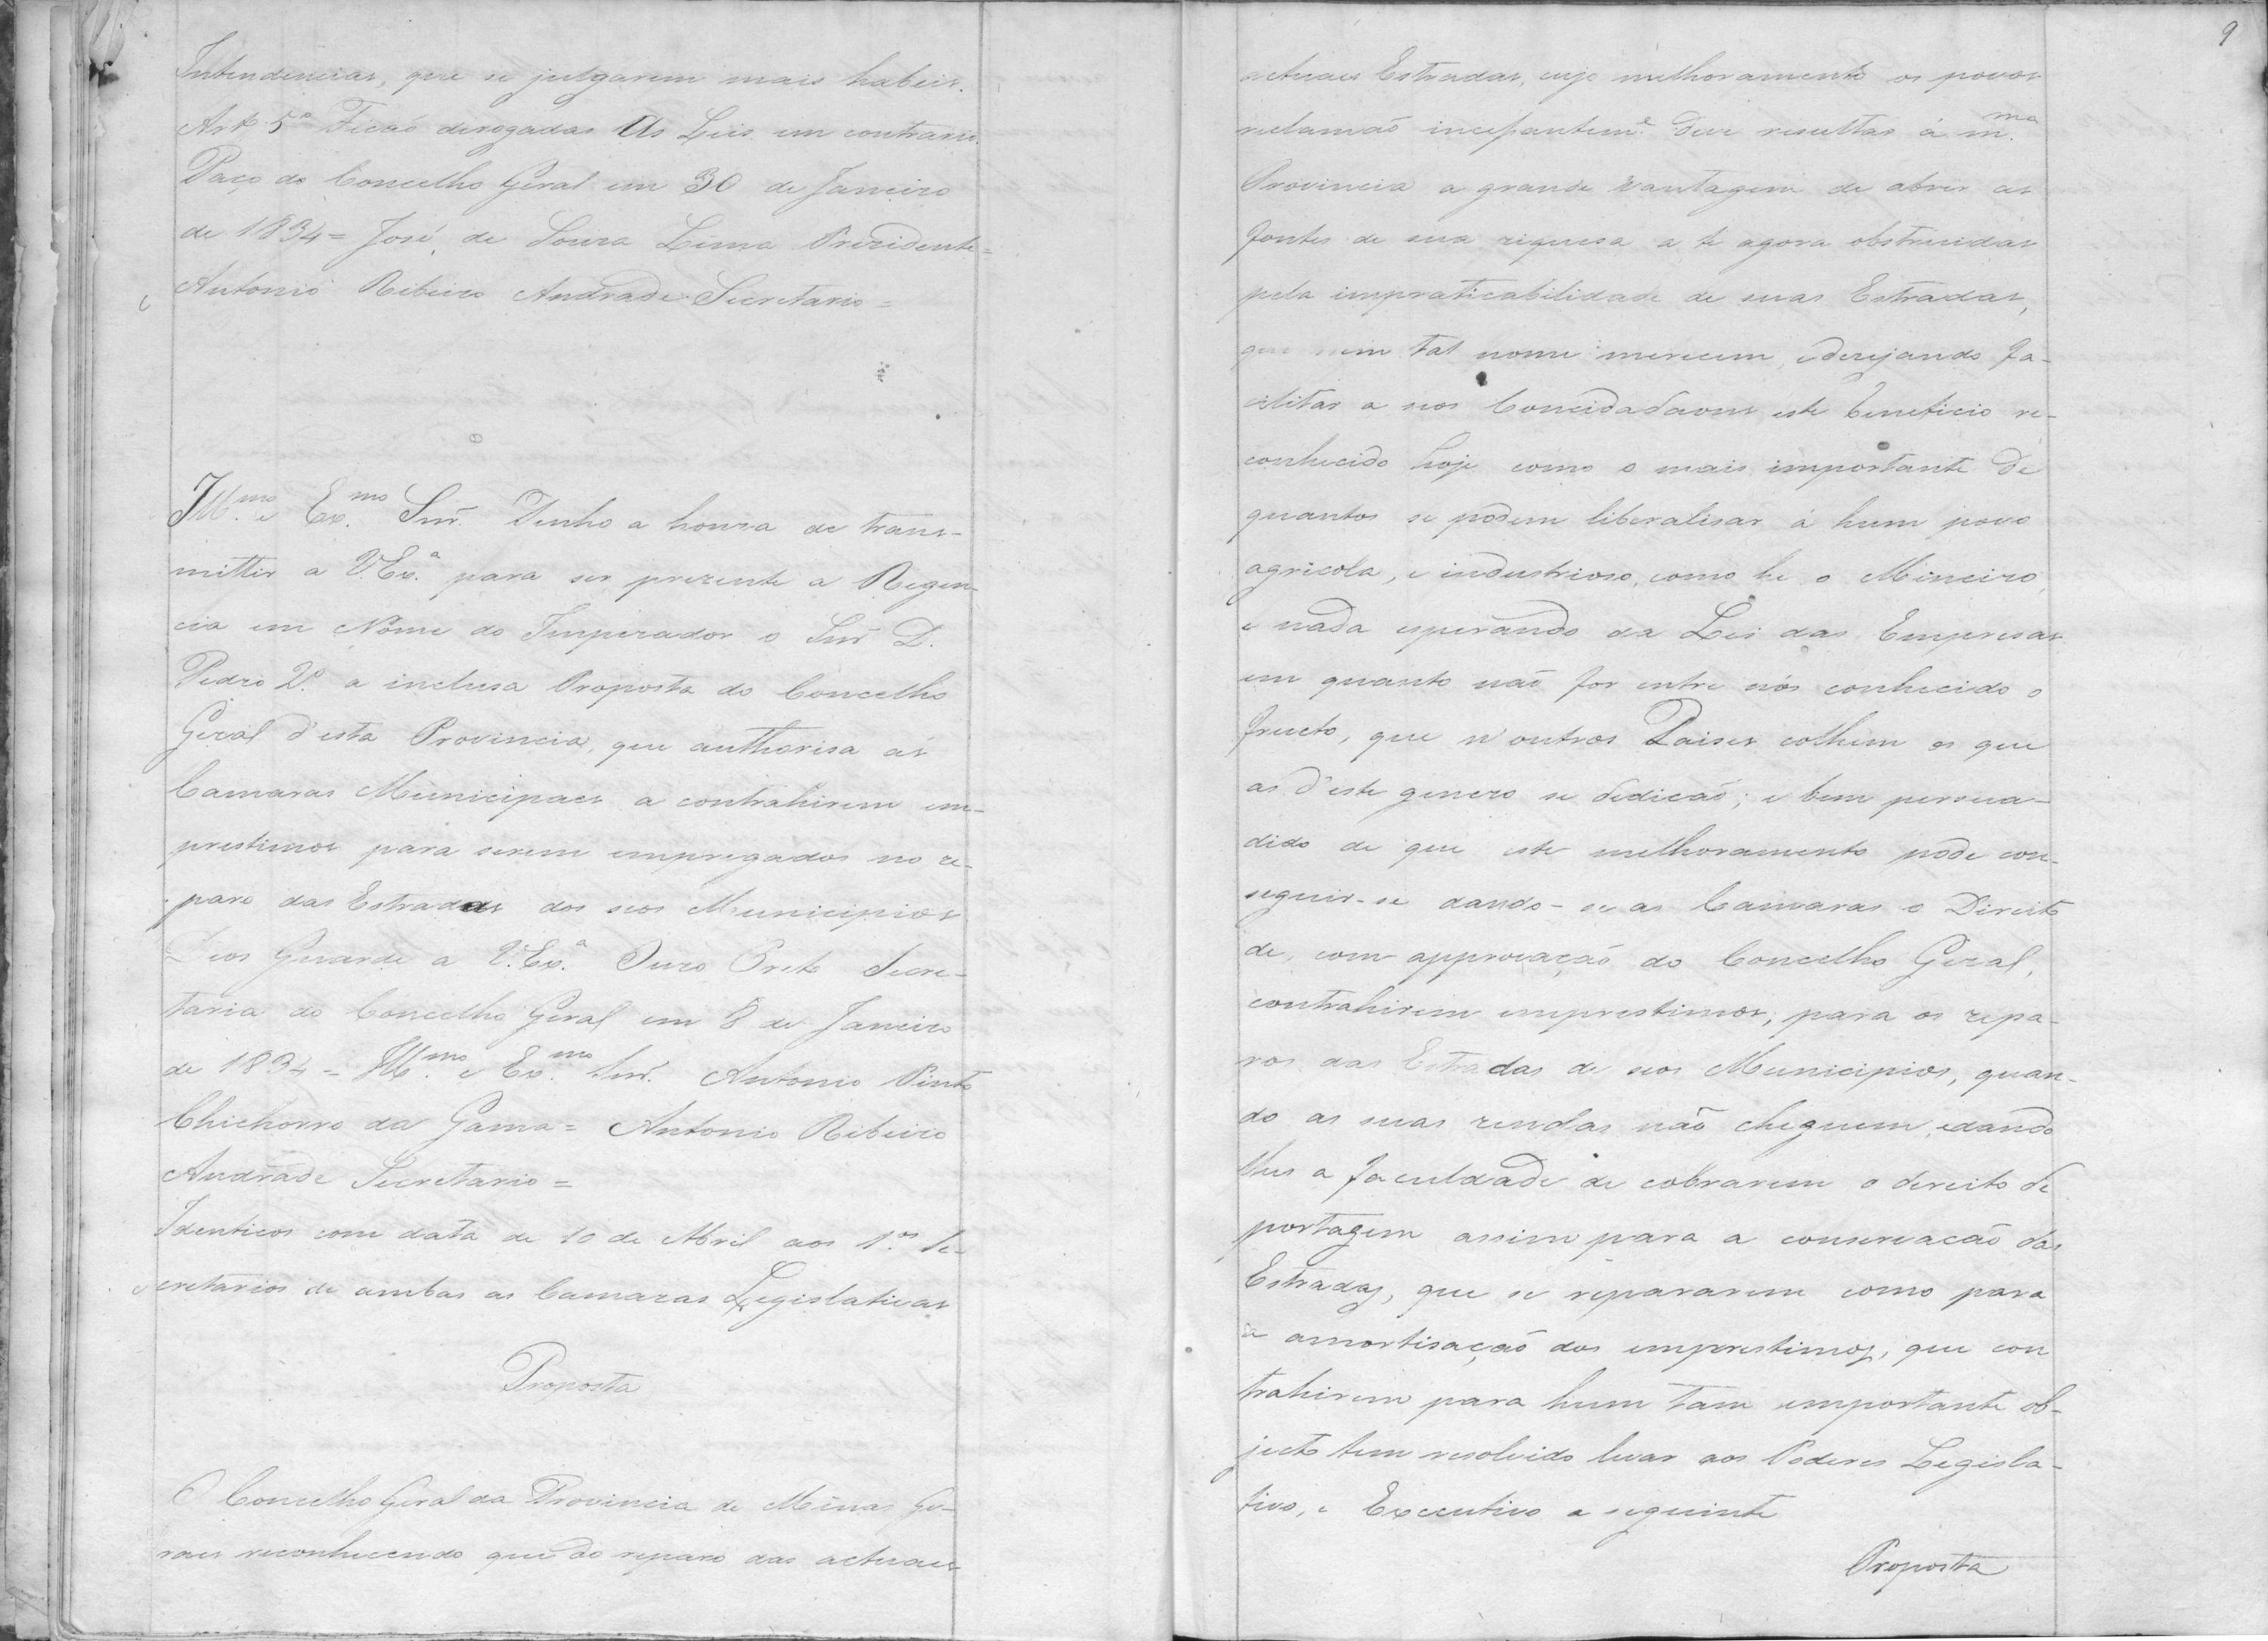 Intendencias, que se julgarem mais habeis.
Art. 5º Ficaõ derogadas As Leis em contrario.
Paço do Concelho Geral em 30 de Janeiro
de 1834 = José de Souza Lima Prezidente =
Antonio Ribeiro Andrade Secretario =
Illmo. e Exmo. Snr. Tenho a honra de trans-
mittir a V.Exª. para ser prezente a Regen-
cia em Nome do Imperador o Snr D.
Pedro 2º. a inclusa Proposta do Concelho
Geral d'esta Provincia, que authorisa ás
Camaras Municipaes a contrahirem em-
prestimos para serem empregados no re-
paro das Estradas dos seos Municipios
Deos Guarde a V.Exª. Ouro Preto Secre-
taria do Concelho Geral em 8 de Janeiro
de 1834 = Illmo. e Exmo. Snr. Antonio Pinto
Chichorro da Gama = Antonio Ribeiro
Andrade Secretario =
Identicos com data de 10 de Abril aos 1.os Se-
cretarios de ambas as Camaras Legislativas
Proposta
O Concelho Geral da Provincia de Minas Ge-
raes reconhecendo que do reparo das actuaes
9
actuaes Estradas, cujo milhoramento os povos
reclamaõ incessantemᵉ. deve resultar á m.ma
Provincia a grande vantagem de abrir as
fontes de sua riquesa a té agora obstruidas
pela impraticabilidade de suas Estradas,
que nem tal nome merecem, e dezejando fa-
cilitar a seos Concidadaons este beneficio re-
conhecido hoje como o mais importante de
quantos se podem liberalisar á hum povo
agricola, e industrioso, como he o Mineiro,
e nada esperando da Lei das Empresas
em quanto naõ for entre nós conhecido o
fructo, que n'outros Paises colhem os que
as d'este genero se dedicaõ; e bem persua-
dido de que este melhoramento pode con-
seguir-se dando-se as Camaras o Direito
de, com approvaçaõ do Concelho Geral,
contrahirem emprestimos, para os repa-
ros das Estradas de seos Municipios, quan-
do as suas rendas naõ cheguem, e dando
lhes a faculdade de cobrarem o dereito de
portagem assim para a conservacaõ das
Estradas, que se repararem como para
a amortisaçaõ dos emprestimos, que con
trahirem para hum tam importante ob-
jecto tem resolvido levar aos Poderes Legisla-
tivo, e Executivo a seguinte
Proposta